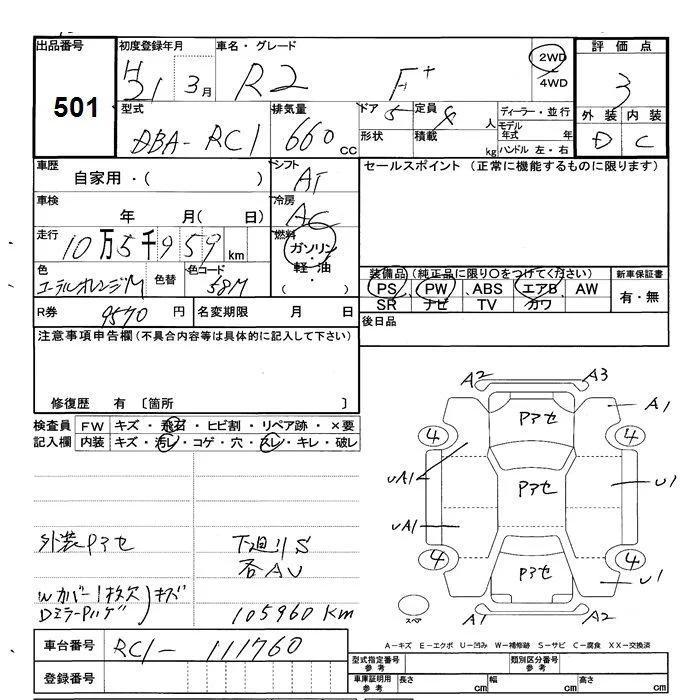 出品番号
501
初度登録年月
H 21 3月
車名・グレード
R2 F+
2WD
4WD
評価点
3
外装 内装
D C
型式
DBA-RC1
排気量
660 CC
ドア 5
定員 4 人
形状
積載 kg
ディーラー・並行
モデル年式 年
ハンドル 左・右
車歴
自家用・( )
シフト
AT
セールスポイント (正常に機能するものに限ります)
車検
年 月( 日)
冷房
AC
走行
10万5千959 km
燃料
ガソリン・
軽・油
( )
色
色替
色コード
58M
装備品(純正品に限り○をつけてください)
PS、PW、ABS エアB、AW
SR ナビ TV カワ
新車保証書
有・無
R券 9570 円
名変期限 月 日
後日品
注意事項申告欄(不具合内容等は具体的に記入して下さい)
修復歴 有 〔箇所 〕
検査員
記入欄
FW キズ・飛石・ヒビ割・リペア跡・×要
内装 キズ・汚レ・コゲ・穴・スレ・キレ・破レ
外装Pアセ
下廻りS
Wカバー1枚欠
キズ
DミラーPハゲ
105960 Km
A2 A3
A1
Pアセ
4 4
UA1
Pアセ
U1
UA1
4 4
Pアセ
U1
スペア
A1 A2
A-キズ E-エクボ U-凹み W-補修跡 S-サビ C-腐食 XX-交換済
車台番号
RC1-111760
登録番号
型式指定番号
参考
類別区分番号
参考
車庫証明用
参考
長さ cm
幅 cm
高さ cm